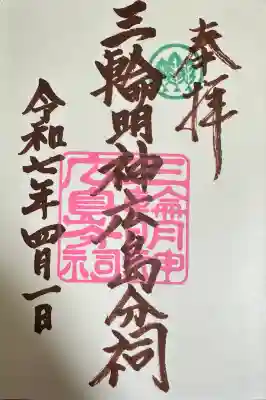 奉拝
三輪明神広島分祠
三輪明神
広島分祠
令和七年四月一日